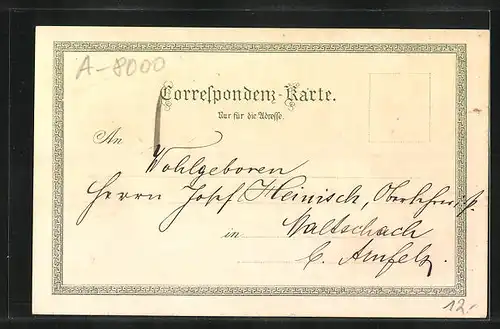 A-8000
Correspondenz-Karte.
Nur für die Adresse.
An Wohlgeboren
Herrn Josef Heinisch,
in Maltschach
b. Arnfels.
12.-